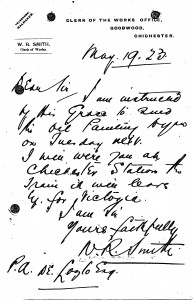 CLERK OF THE WORKS OFFICE,
GOODWOOD,
CHICHESTER.
W. R. SMITH,
Clerk of Works.
May 19. 23.
Dear Sir
I am instructed
by His Grace to send
the Oil Painting
on Tuesday next.
I will meet you at
Chichester Station the
Train it will leave
for Victoria.
I am Sir
Yours faithfully
W R Smith
P. A. De Laszlo Esq.